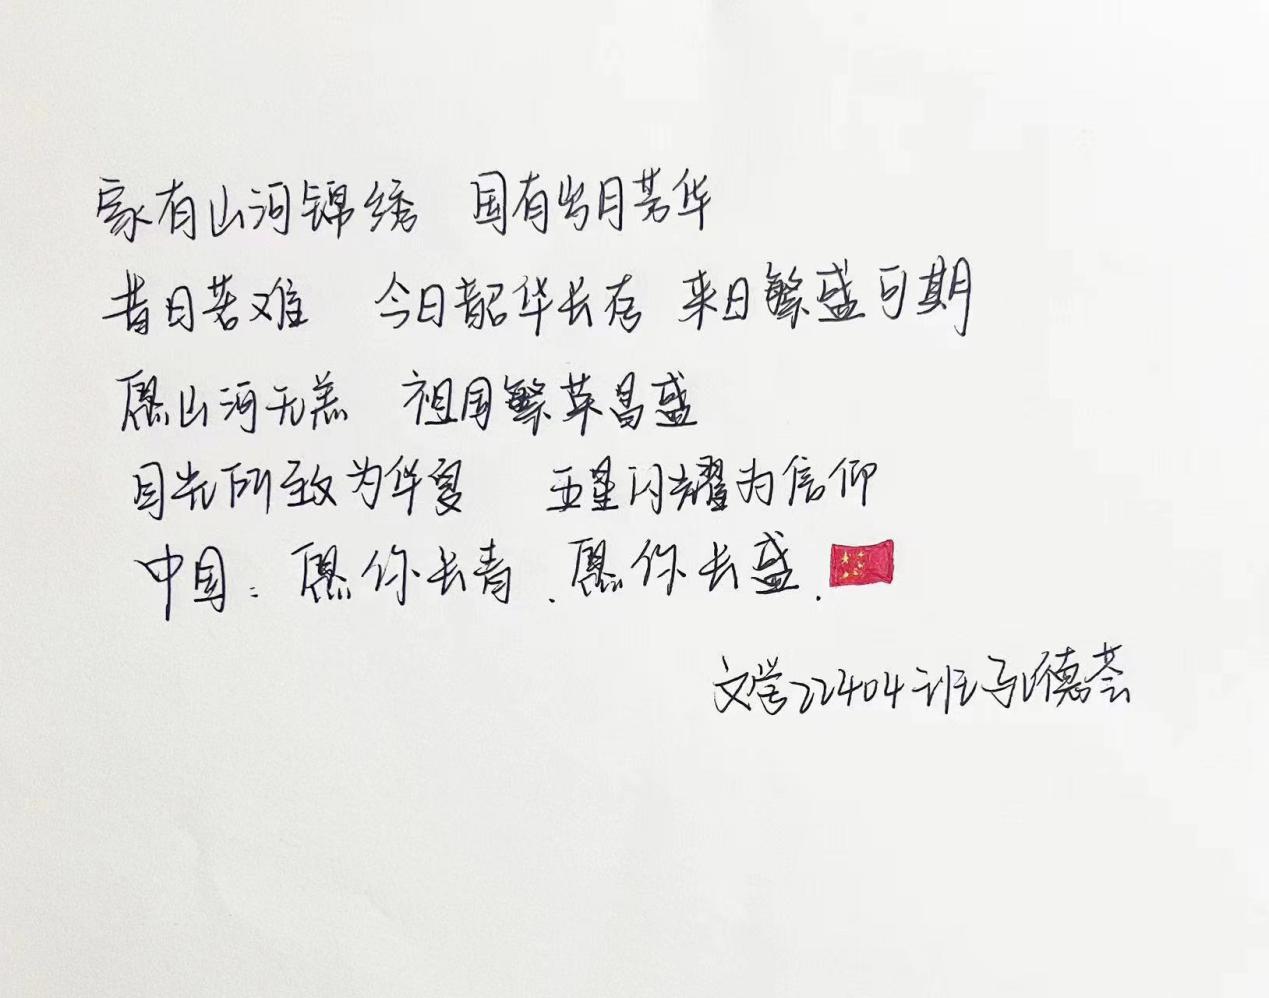 家有山河锦绣 国有岁月芳华
昔日苦难 今日韶华长存 来日繁盛可期
愿山河无恙 祖国繁荣昌盛
目光所致为华夏 五星闪耀为信仰
中国：愿你长青．愿你长盛．
文学22404班马德荟